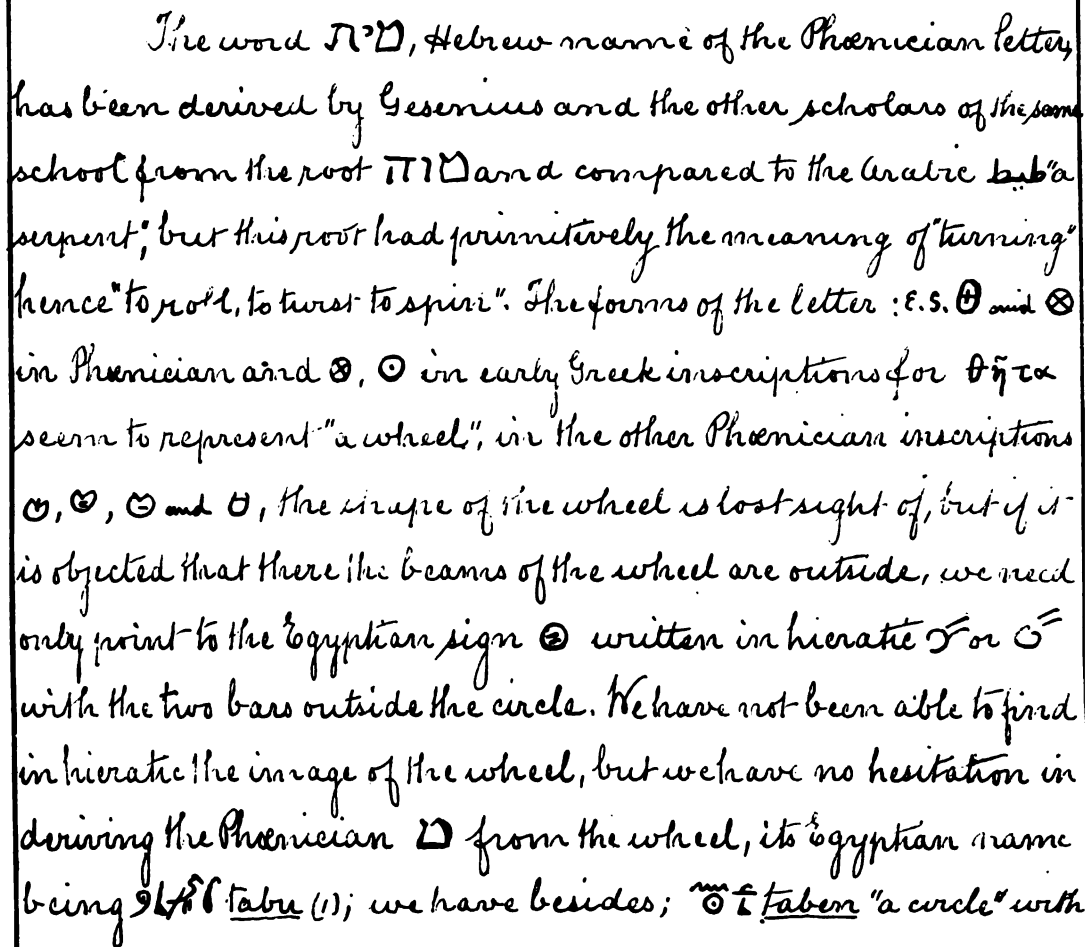 The word טית, Hebrew name of the Phœnician letter,
has been derived by Gesenius and the other scholars of the same
school from the root טוה and compared to the Arabic "a
serpent"; but this root had primitively the meaning of "turning"
hence "to roll, to twist to spin". The forms of the letter : E.S. ⊕ and ⊗
in Phœnician and ⊗, ⊙ in early Greek inscriptions for θῆτα
seem to represent "a wheel", in the other Phœnician inscriptions
and , the shape of the wheel is lost sight of, but if it
is objected that there the beams of the wheel are outside, we need
only point to the Egyptian sign written in hieratic or
with the two bars outside the circle. We have not been able to find
in hieratic the image of the wheel, but we have no hesitation in
deriving the Phœnician ט from the wheel, its Egyptian name
being tabu (1); we have besides; taben "a circle" with